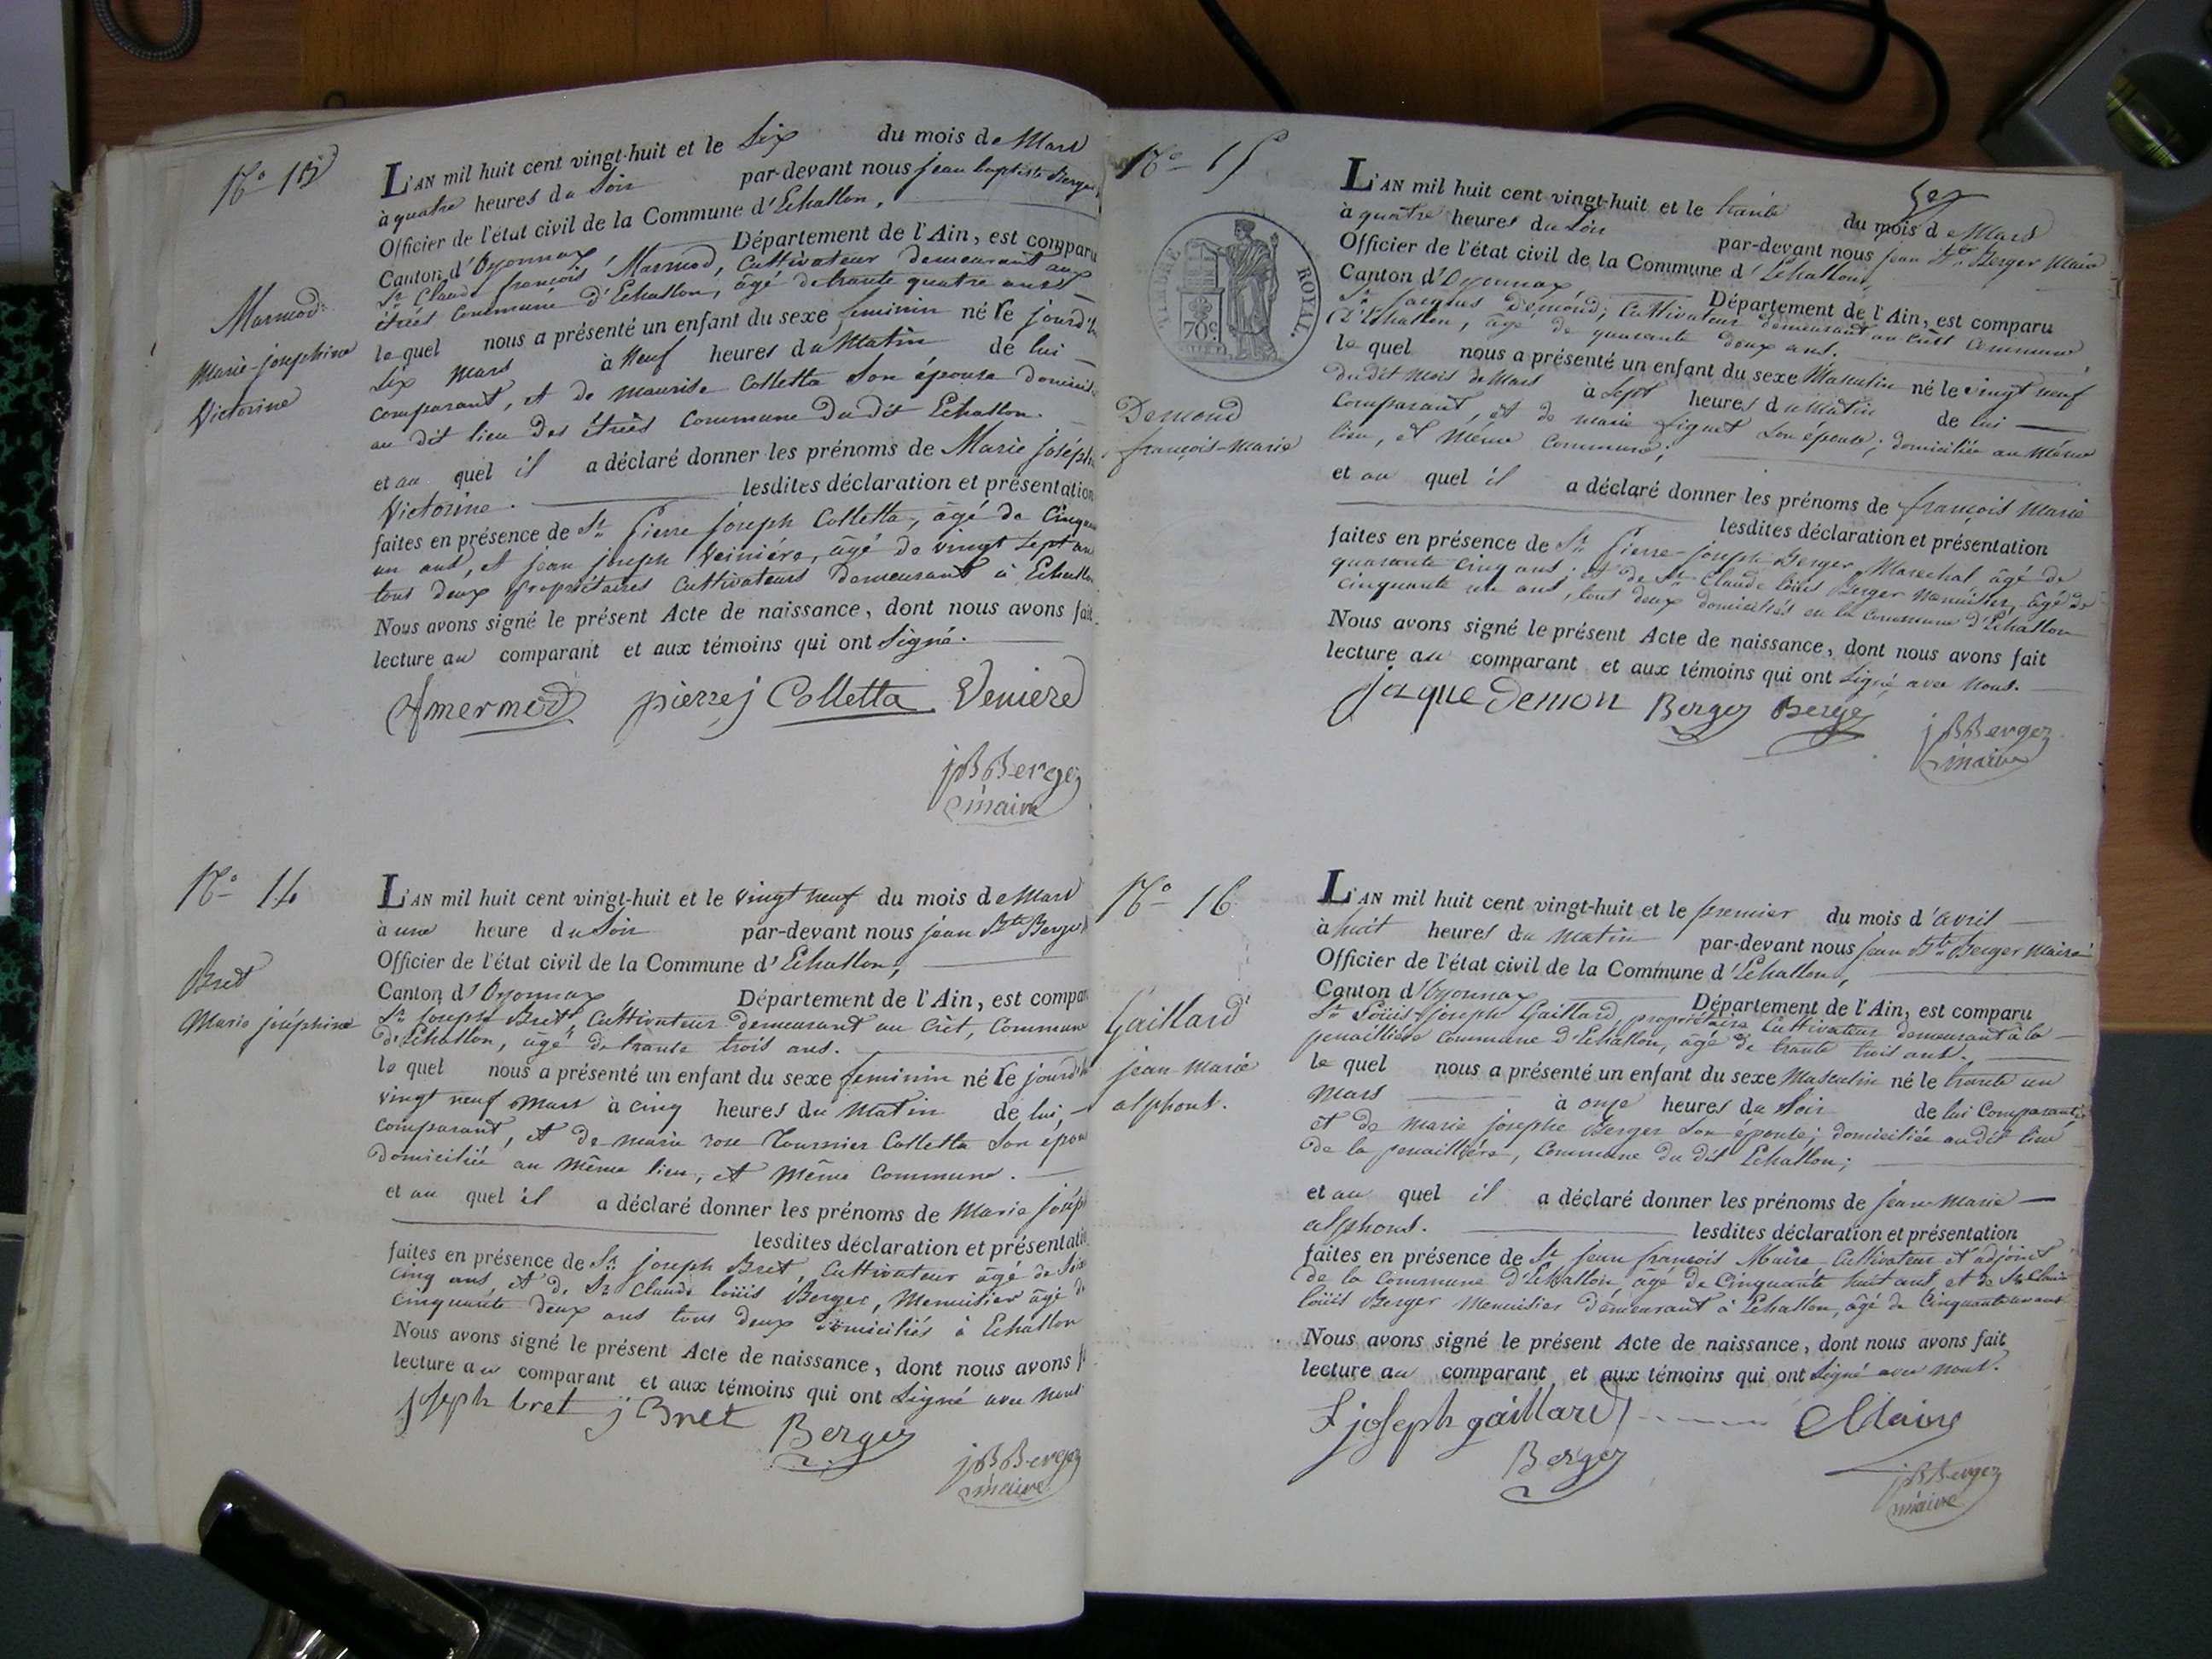 N° 13
L'AN mil huit cent vingt-huit et le Six du mois de Mars
à quatre heures du Soir par-devant nous jean baptiste Berger
Officier de l'état civil de la Commune d'Echallon,
Canton d'Oyonnax Département de l'Ain, est comparu
Sr. Claude françois Marmod, Cultivateur demeurant aux
étrés commune d'Echallon, âgé de trante quatre ans
Marmod
Marie-josephine
Victorine
le quel nous a présenté un enfant du sexe feminin né le jourd'h
Six Mars à Neuf heures du Matin de lui
comparant, et de maurise Colletta Son épouse domicil
au dit lieu des étrés commune du dit Echallon.
et au quel il a déclaré donner les prénoms de Marie joséph
Victorine. lesdites déclaration et présentation
faites en présence de Sr. Pierre Joseph Colletta, âgé de Cinqua
un ans, et jean joseph Veiniére, âgé de vingt Sept ans
tous deux propriétaires Cultivateurs demeurant à Echallon
Nous avons signé le présent Acte de naissance, dont nous avons fait
lecture au comparant et aux témoins qui ont Signé.
pierre j Colletta Veniere
jB Berger
maire
N° 14
L'AN mil huit cent vingt-huit et le vingt neuf du mois de Mars
à une heure du Soir par-devant nous jean Bte Berger
Officier de l'état civil de la Commune d'Echallon,
Canton d'Oyonnax Département de l'Ain, est compar
Sr. Joseph Bret, Cultivateur demeurant au Crêt, Commune
d'Echallon, âgé de trante trois ans.
Bret
Marie joséphine
le quel nous a présenté un enfant du sexe feminin né le jourd'h
vingt neuf Mars à Cinq heures du Matin de lui,
comparant, et de marie rose Tournier Colletta Son épou
domiciliée au même lieu, et même commune.
et au quel il a déclaré donner les prénoms de Marie joséph
lesdites déclaration et présentatio
faites en présence de Sr. joseph Bret, Cultivateur âgé de Soix
cinq ans, et de Sr. Claude loüis Berger, Menuisier âgé de
cinquante deux ans tous deux domiciliés à Echallon
Nous avons signé le présent Acte de naissance, dont nous avons f
lecture au comparant et aux témoins qui ont Signé avec nous
joseph bret j Bret Berger
jB Berger
maire
N° 15
TIMBRE ROYAL
70 c.
L'AN mil huit cent vingt-huit et le trante du mois de Mars
à quatre heures du Soir par-devant nous jean Bte Berger Maire
Officier de l'état civil de la Commune d'Echallon,
Canton d'Oyonnax Département de l'Ain, est comparu
Sr. Jacques Demond, Cultivateur demeurant au Crêt Commune
d'Echallon, âgé de quarante deux ans.
Demond
françois-Marie
le quel nous a présenté un enfant du sexe Masculin né le vingt neuf
du dit mois de Mars à Sept heures du Matin de lui
Comparant, et de marie Piquet Son épouse; domiciliée au même
lieu, et même Commune;
et au quel il a déclaré donner les prénoms de françois Marie
lesdites déclaration et présentation
faites en présence de Sr. Pierre-joseph Berger Marechal âgé de
quarante cinq ans; et de Sr. Claude loüis Berger Menuisier, âgé de
cinquante un ans, tout deux domiciliés en la commune d'Echallon
Nous avons signé le présent Acte de naissance, dont nous avons fait
lecture au comparant et aux témoins qui ont Signé avec Nous.
jaque Demon Berger Berge
jB Berger
maire
N° 16
L'AN mil huit cent vingt-huit et le premier du mois d'avril
à huit heures du Matin par-devant nous jean Bte Berger Maire
Officier de l'état civil de la Commune d'Echallon,
Canton d'Oyonnax Département de l'Ain, est comparu
Sr. Loüis-Joseph Gaillard, propriétaire Cultivateur demeurant à la
penaillière Commune d'Echallon, âgé de trante trois ans.
Gaillard
jean marie
alphons.
le quel nous a présenté un enfant du sexe Masculin né le trante un
Mars à onze heures du Soir de lui Comparant,
et de Marie josephe Berger Son épouse; domiciliée au dit lieu
de la penaillière, Commune du dit Echallon;
et au quel il a déclaré donner les prénoms de jean-Marie
alphons. lesdites déclaration et présentation
faites en présence de Sr. jean françois Maire Cultivateur et adjoint
de la Commune d'Echallon, âgé de Cinquante huit ans, et de Sr. Claude
loüis Berger Menuisier demeurant à Echallon, âgé de Cinquante un ans
Nous avons signé le présent Acte de naissance, dont nous avons fait
lecture au comparant et aux témoins qui ont Signé avec nous.
joseph gaillard Maire
Berger
jB Berger
maire